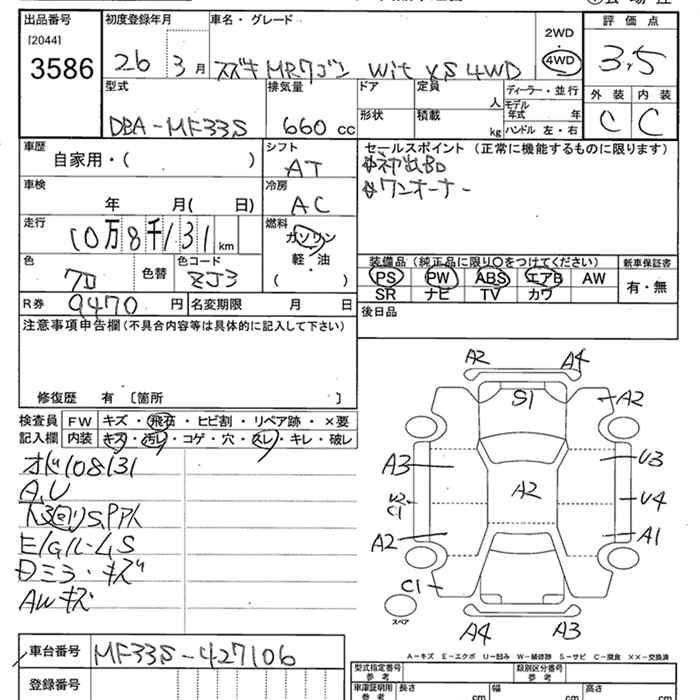 出品番号
[2044]
3586
初度登録年月
26 3月
車名・グレード
スズキMRワゴン Wit XS 4WD
2WD
4WD
評価点
3.5
外装 内装
C C
型式
DBA-MF33S
排気量
660cc
ドア
形状
定員
人
積載
kg
ディーラー・並行
モデル年式 年
ハンドル 左・右
車歴
自家用・( )
シフト
AT
車検
年 月( 日)
冷房
AC
走行
10万8千131km
燃料
ガソリン
軽・油
( )
色
色替
色コード
ZJ3
R券 9470円
名変期限 月 日
セールスポイント(正常に機能するものに限ります)
ワンオーナー
装備品(純正品に限り〇をつけてください)
PS PW ABS エアB AW
SR ナビ TV カワ
新車保証書
有・無
後日品
注意事項申告欄(不具合内容等は具体的に記入して下さい)
修復歴 有 [箇所 ]
検査員記入欄
FW キズ・飛石・ヒビ割・リペア跡・×要
内装 キズ・汚レ・コゲ・穴・スレ・キレ・破レ
オド108131
A.U
E/Gルーム S
Dミラ・キズ
AWキズ
A2 A4
S1
A2
A3 U3
A2
U2
C1
U4
A2 A1
C1
スペア
A4 A3
A-キズ E-エクボ U-凹み W-補修跡 S-サビ C-腐食 XX-交換済
車台番号
MF33S-427106
登録番号
型式指定番号
参考
類別区分番号
参考
車庫証明用
参考
長さ cm
幅 cm
高さ cm